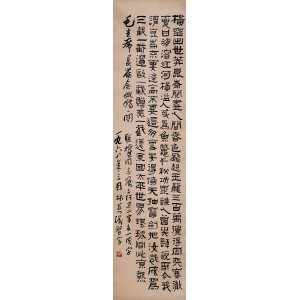 橫空出世莽昆侖閱盡人間春色飛起玉龍三百萬攪得周天寒徹
夏日消溶江河橫溢人或為魚鱉千秋功罪誰人曾與評說而今我
謂昆侖不要這高不要這多雪安得倚天抽寶劍把汝裁為
三截一截遺歐一截贈美一截還東國太平世界環球同此涼熱
毛主席 念奴嬌
一九六 年三月林